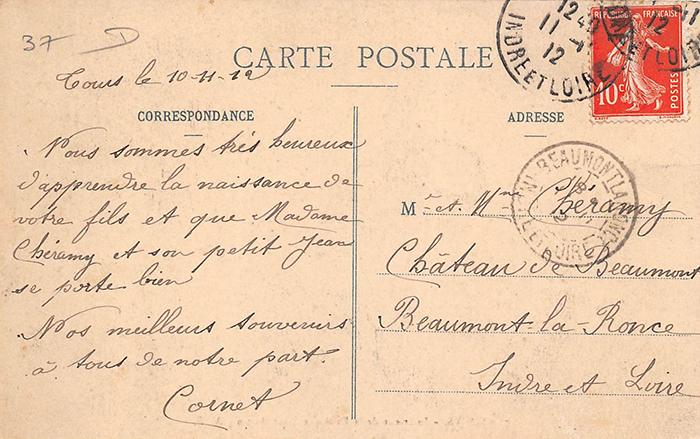 37 D
CARTE POSTALE
Tours le 10-11-12
CORRESPONDANCE
Nous sommes très heureux
d'apprendre la naissance de
votre fils et que Madame
Chéramy et son petit Jean
se porte bien
Nos meilleurs souvenirs
à tous de notre part.
Cornet
ADRESSE
Mr et Mme Chéramy
Château de Beaumont
Beaumont-la-Ronce
Indre et Loire
REPUBLIQUE FRANÇAISE
10c
POSTES
12
11
12
INDRE ET LOIRE
12
ET LOIRE
BEAUMONT LA RONCE